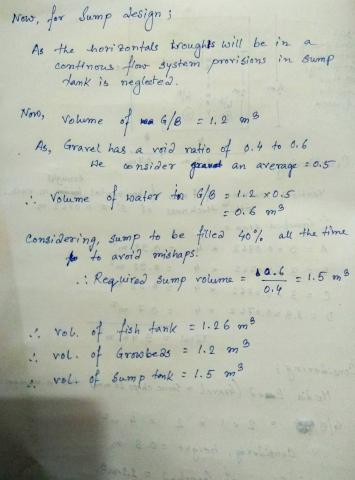 Now, for Sump design;
As the horizontals troughs will be in a
continous flow system provisions in sump
tank is neglected.
Now, volume of G/B = 1.2 m³
As, Gravel has a void ratio of 0.4 to 0.6
We consider an average = 0.5
∴ Volume of water in G/B = 1.2 × 0.5
= 0.6 m³
Considering, sump to be filled 40% all the time
to avoid mishaps.
∴ Required sump volume = 0.6/0.4 = 1.5 m³
∴ vol. of fish tank = 1.26 m³
∴ vol. of Growbeds = 1.2 m³
∴ vol. of Sump tank = 1.5 m³